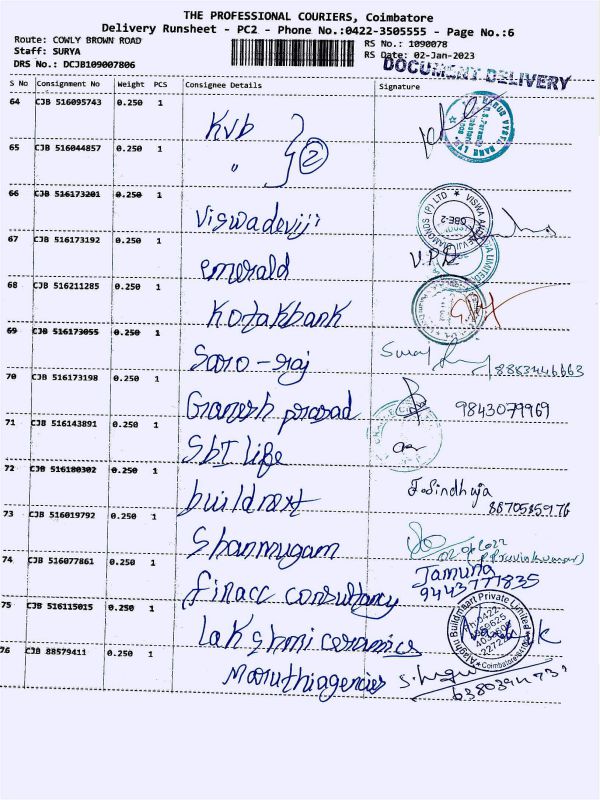 THE PROFESSIONAL COURIERS, Coimbatore
Delivery Runsheet - PC2 - Phone No.:0422-3505555 - Page No.:6
Route: COWLY BROWN ROAD
RS No.: 1090078
Staff: SURYA
RS Date: 02-Jan-2023
DRS No.: DCJB109007806
DOCUMENT DELIVERY
S No Consignment No Weight PCS Consignee Details Signature
64 CJB 516095743 0.250 1
Kvb
65 CJB 516044857 0.250 1
" 2
66 CJB 516173201 0.250 1
Viswadeviji
67 CJB 516173192 0.250 1
emerald V.P.D
68 CJB 516211285 0.250 1
Kotakbank
69 CJB 516173055 0.250 1
Saro-raj Suraj 8883446663
70 CJB 516173198 0.250 1
Ganesh prasad 9843079969
71 CJB 516143891 0.250 1
SbI life
72 CJB 516180302 0.250 1
buildnext J.Sindhuja
8870585976
73 CJB 516019792 0.250 1
Shanmugam
74 CJB 516077861 0.250 1
finacc consultancy Jamuna
9443771835
75 CJB 516115015 0.250 1
Lakshmi ceramics
Alaghu Buildmaart Private Limited
Coimbatore
76 CJB 88579411 0.250 1
Maruthiagencies